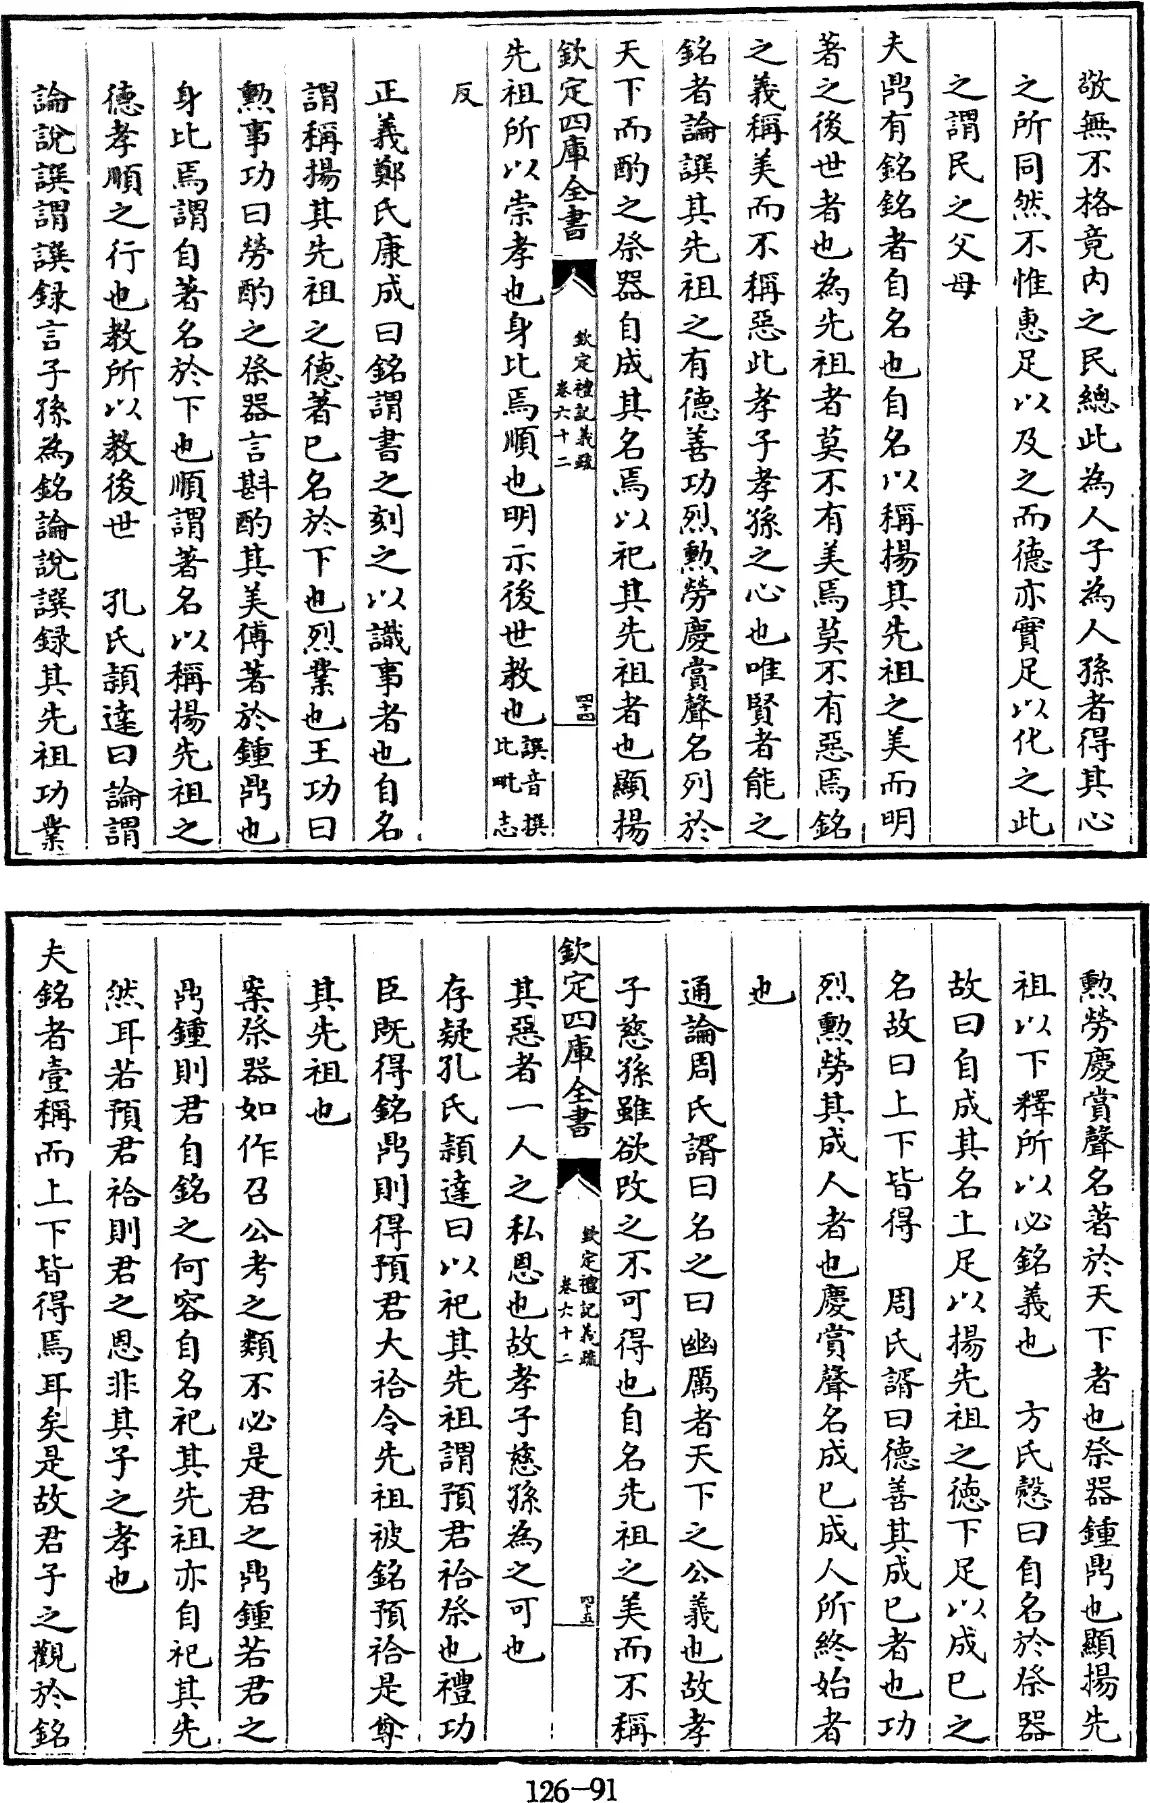 敬無不格竟内之民總此為人子為人孫者得其心
之所同然不惟惠足以及之而德亦實足以化之此
之謂民之父母
夫鼎有銘銘者自名也自名以稱揚其先祖之美而明
著之後世者也為先祖者莫不有美焉莫不有惡焉銘
之義稱美而不稱惡此孝子孝孫之心也唯賢者能之
銘者論譔其先祖之有德善功烈勲勞慶賞聲名列於
天下而酌之祭器自成其名焉以祀其先祖者也顯揚
欽定四庫全書
欽定禮記義疏
卷六十二
四十四
先祖所以崇孝也身比焉順也明示後世教也譔音撰
比毗志
反
正義鄭氏康成曰銘謂書之刻之以識事者也自名
謂稱揚其先祖之德著已名於下也烈業也王功曰
勲事功曰勞酌之祭器言斟酌其美傅著於鍾鼎也
身比焉謂自著名於下也順謂著名以稱揚先祖之
德孝順之行也教所以教後世　孔氏頴達曰論謂
論說譔謂譔録言子孫為銘論說譔録其先祖功業
勲勞慶賞聲名著於天下者也祭器鍾鼎也顯揚先
祖以下釋所以必銘義也　方氏慤曰自名於祭器
故曰自成其名上足以揚先祖之德下足以成已之
名故曰上下皆得　周氏諝曰德善其成已者也功
烈勲勞其成人者也慶賞聲名成已成人所終始者
也
通論周氏諝曰名之曰幽厲者天下之公義也故孝
子慈孫雖欲改之不可得也自名先祖之美而不稱
欽定四庫全書
欽定禮記義疏
卷六十二
四十五
其惡者一人之私恩也故孝子慈孫為之可也
存疑孔氏頴達曰以祀其先祖謂預君袷祭也禮功
臣既得銘鼎則得預君大袷令先祖被銘預袷是尊
其先祖也
案祭器如作召公考之類不必是君之鼎鍾若君之
鼎鍾則君自銘之何容自名祀其先祖亦自祀其先
然耳若預君袷則君之恩非其子之孝也
夫銘者壹稱而上下皆得焉耳矣是故君子之觀於銘
126-91